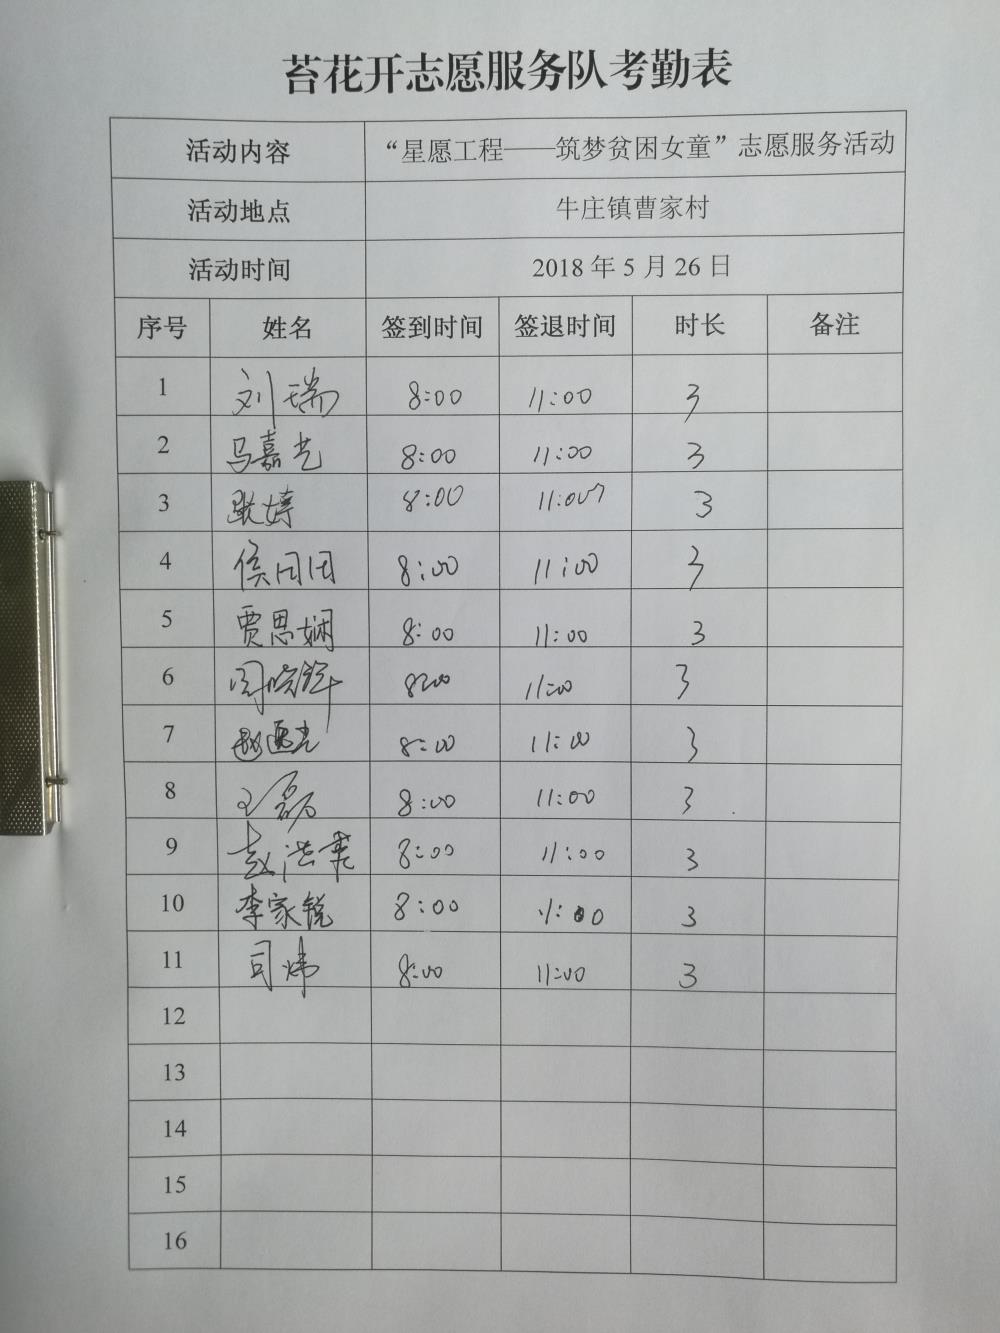 苔花开志愿服务队考勤表
活动内容 “星愿工程——筑梦贫困女童”志愿服务活动
活动地点 牛庄镇曹家村
活动时间 2018 年 5 月 26 日
序号 姓名 签到时间 签退时间 时长 备注
1 刘瑞 8:00 11:00 3
2 马嘉艺 8:00 11:00 3
3 耿婷 8:00 11:00 3
4 侯团团 8:00 11:00 3
5 贾思娴 8:00 11:00 3
6 周晓辉 8:00 11:00 3
7 赵 8:00 11:00 3
8 王磊 8:00 11:00 3
9 赵洪 8:00 11:00 3
10 李家锐 8:00 11:00 3
11 司炜 8:00 11:00 3
12
13
14
15
16